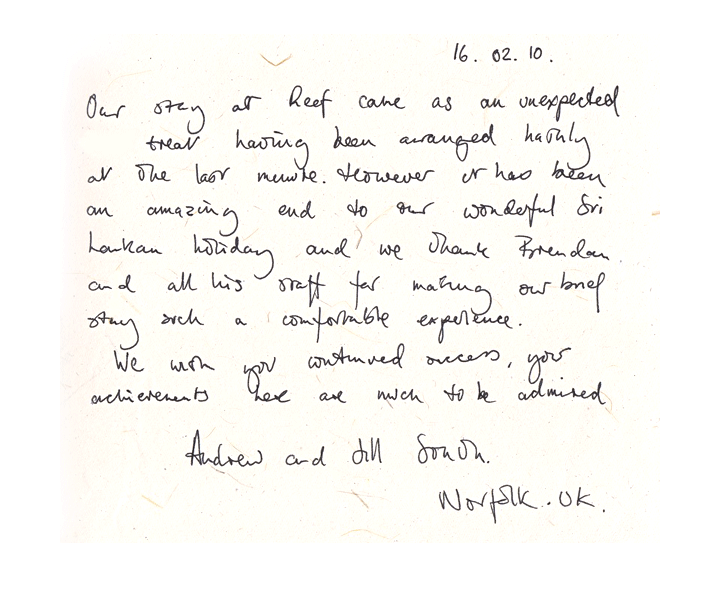 16. 02. 10.
Our stay at Reef came as an unexpected
treat having been arranged hastily
at the last minute. However it has been
an amazing end to our wonderful Sri
Lankan holiday and we thank Brendan
and all his staff for making our brief
stay such a comfortable experience.
We wish you continued success, your
achievements here are much to be admired
Andrew and Jill
Norfolk. UK.